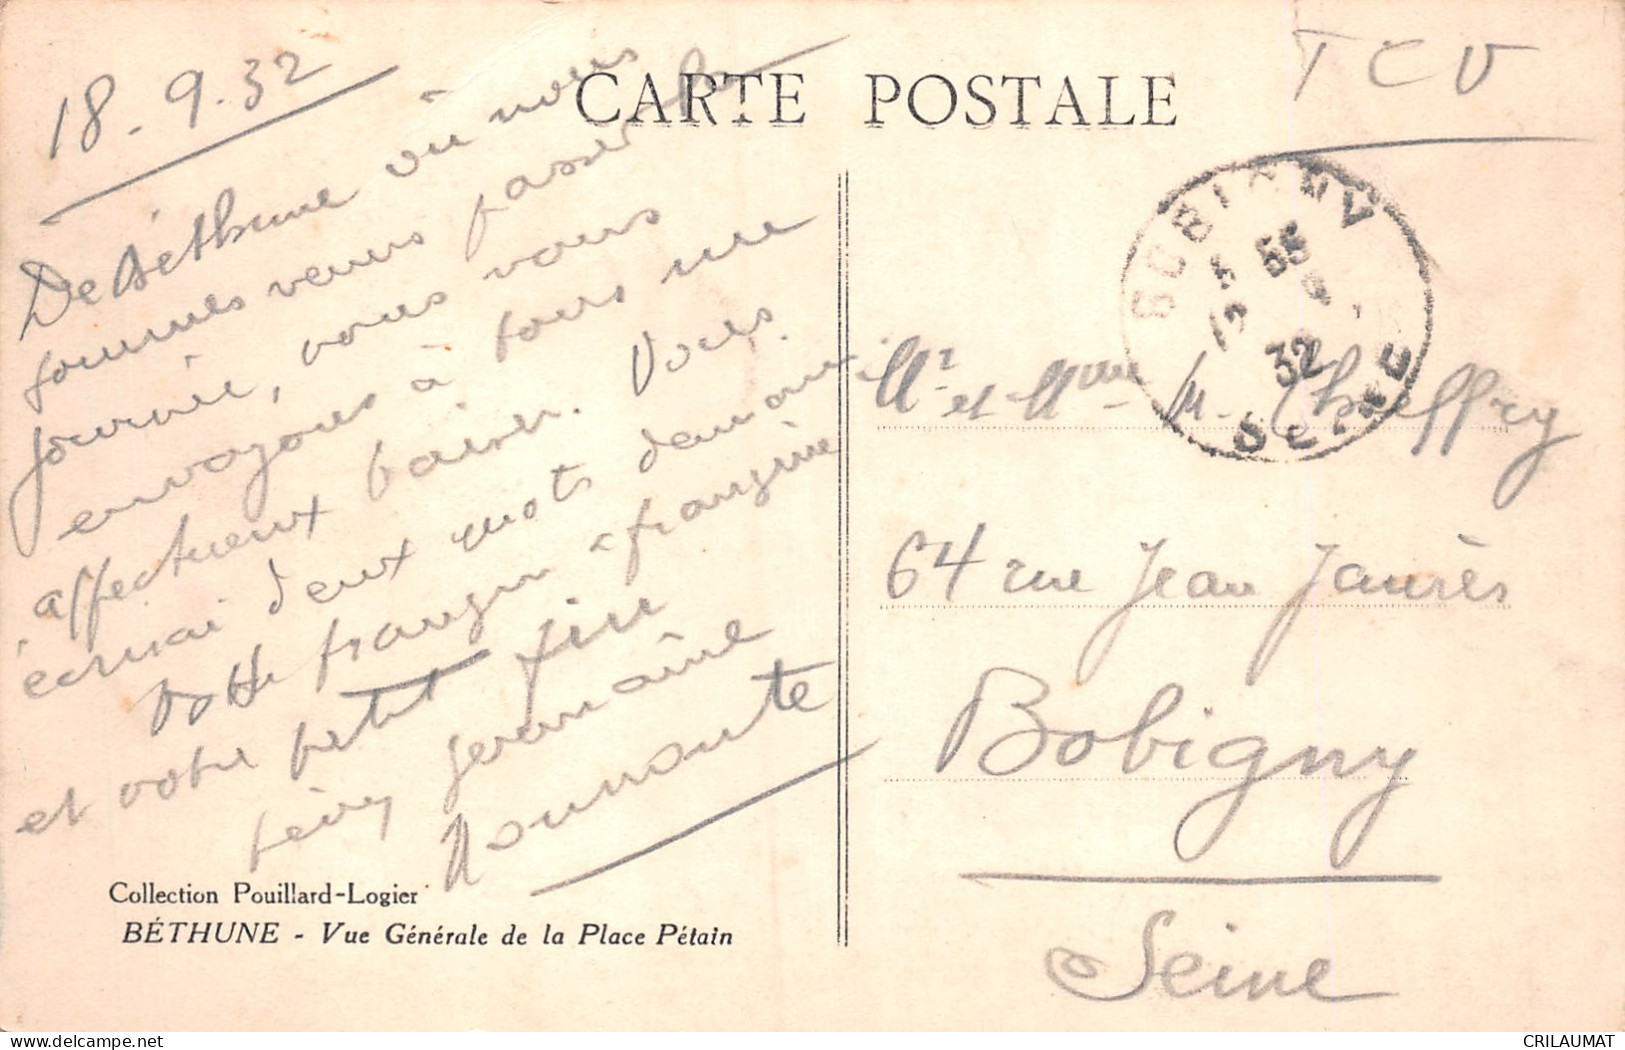 18.9.32
CARTE POSTALE
TCV
De Béthune où nous
sommes venus passer la
journée, nous vous
envoyons à tous un
affectueux baiser. Vous
écrirai deux mots demain
votre frangin - frangine
et votre petit
Germaine
BOBIGNY
55
32
SEINE
Mr et Mme M. Cheffry
64 rue Jean Jaurès
Bobigny
Seine
Collection Pouillard-Logier
BÉTHUNE - Vue Générale de la Place Pétain
delcampe.net
CRILAUMAT